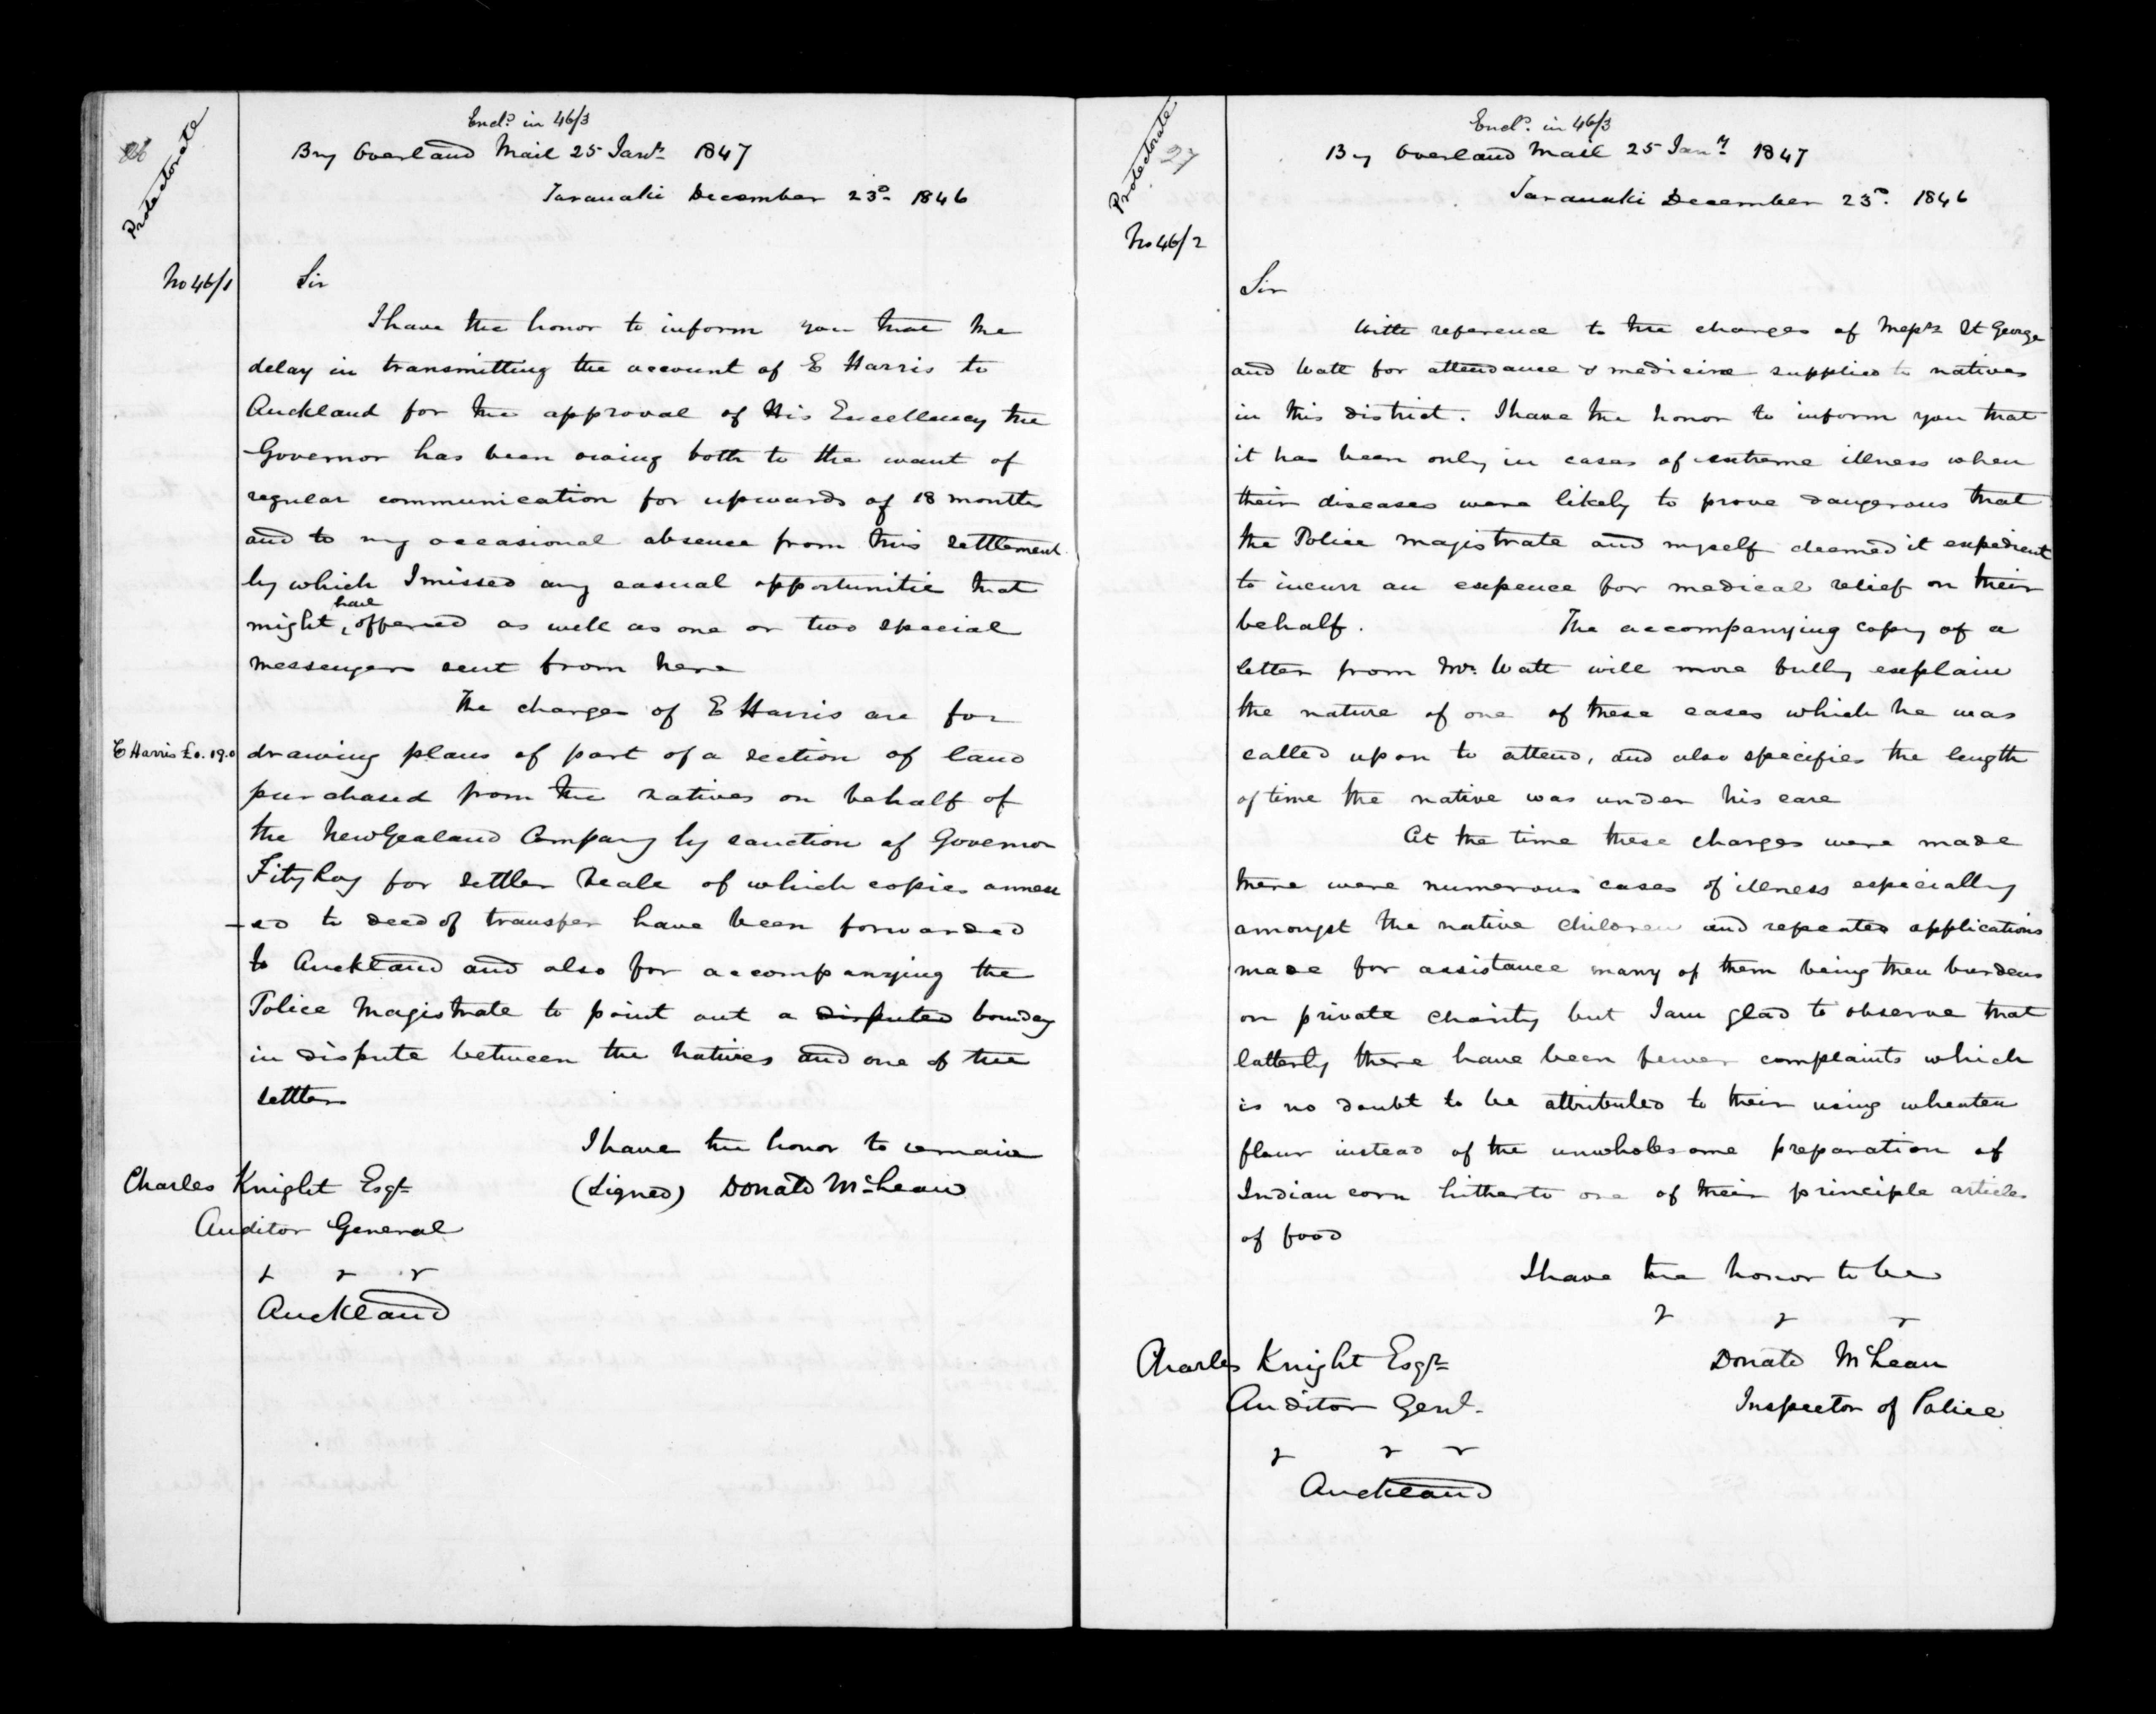 26
Protectorate
Encl.d in 46/3
By Overland Mail 25 Jan.y 1847
Taranaki December 23.d 1846
No 46/1
Sir
I have the honor to inform you that the
delay in transmitting the account of E Harris to
Auckland for the approval of His Excellency the
Governor has been owing both to the want of
regular communication for upwards of 18 months
and to my occasional absence from this settlement
by which I missed any casual opportunitie that
might have offered as well as one or two special
messengers sent from here
The charges of E Harris are for
E Harris £0.19.0
drawing plans of part of a section of land
purchased from the natives on behalf of
the New Zealand Company by sanction of Governor
FitzRoy for settler Scale of which copies annex
-ed to deed of transfer have been forwarded
to Auckland and also for accompanying the
Police Magistrate to point out a disputed bounday
in dispute between the natives and one of the
settlers
I have the honor to remain
(Signed) Donald McLean
Charles Knight Esqr
Auditor General
& & &
Auckland
Protectorate
27
Encl.d in 46/3
By Overland Mail 25 Jan.y 1847
Taranaki December 23.d 1846
No 46/2
Sir
With reference to the charges of Messrs St George
and Watt for attendance & medicine supplied to natives
in this district. I have the honor to inform you that
it has been only in cases of extreme illness when
their diseases were likely to prove dangerous that
the Police Magistrate and myself deemed it expedient
to incurr an expence for medical relief on their
behalf. The accompanying copy of a
letter from Mr. Watt will more fully explain
the nature of one of these cases which he was
called upon to attend, and also specifies the length
of time the native was under his care
At the time these charges were made
there were numerous cases of illness especially
amongst the native children and repeated applications
made for assistance many of them being then burdens
on private charity but I am glad to observe that
latterly there have been fewer complaints which
is no doubt to be attributed to their using wheaten
flour instead of the unwholesome preparation of
Indian corn hitherto one of their principle articles
of food
I have the honor to be
& & &
Donald McLean
Inspector of Police
Charles Knight Esqr
Auditor Genl.
& & &
Auckland